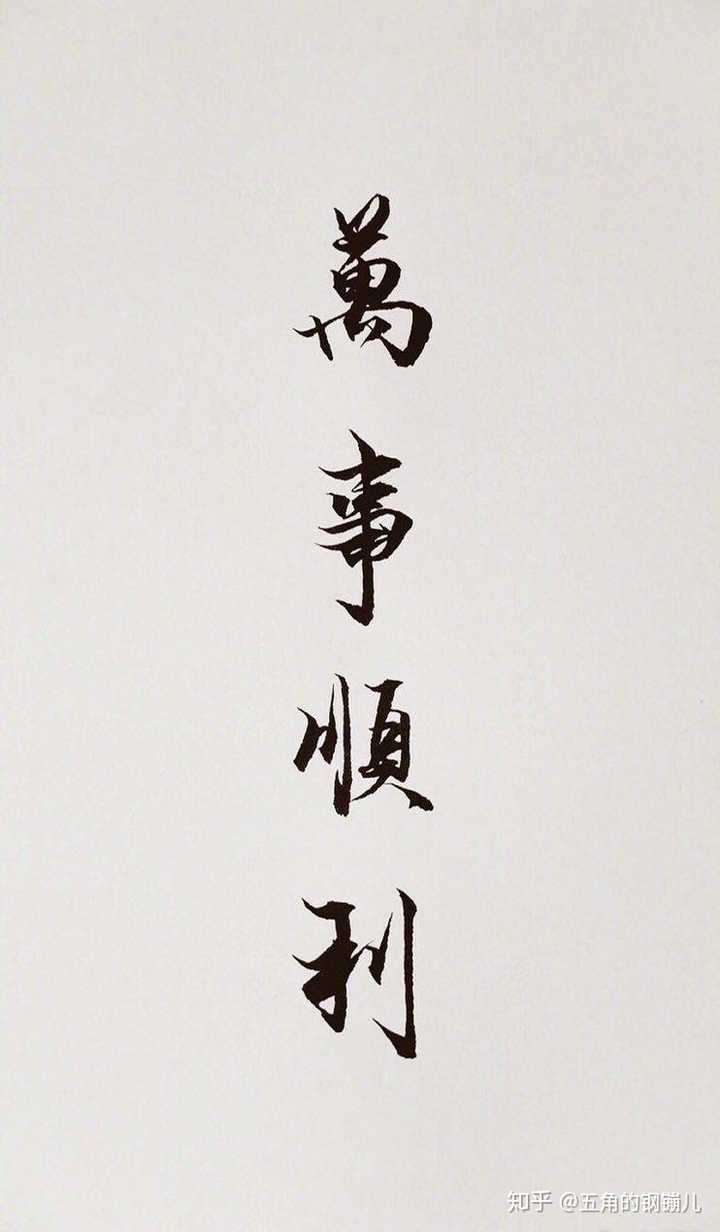 萬事順利
知乎 @五角的钢镚儿